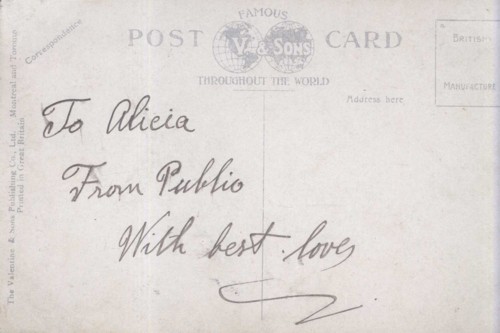 FAMOUS
POST V. & SONS CARD
THROUGHOUT THE WORLD
Correspondence
Address here
BRITISH
MANUFACTURE
To Alicia
From Publio
With best loves
The Valentine & Sons Publishing Co., Ltd. Montreal and Toronto
Printed in Great Britain